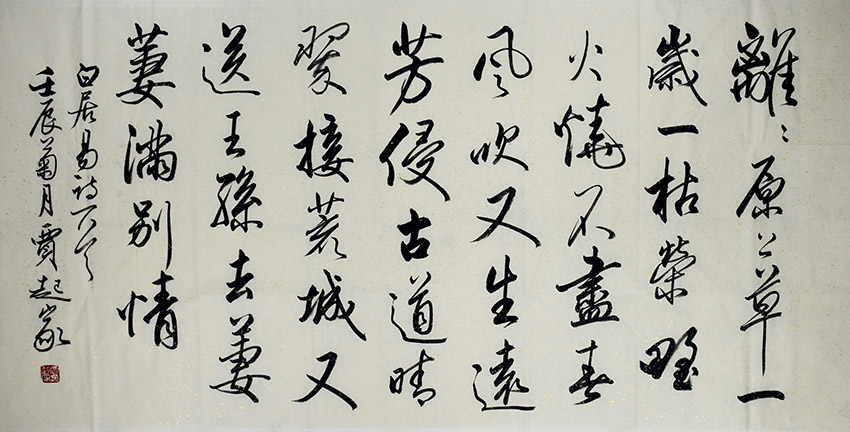 離〻原上草一
歲一枯榮野
火燒不盡春
風吹又生遠
芳侵古道晴
翠接荒城又
送王孫去萋
萋滿別情
白居易詩一首
壬辰菊月賈起